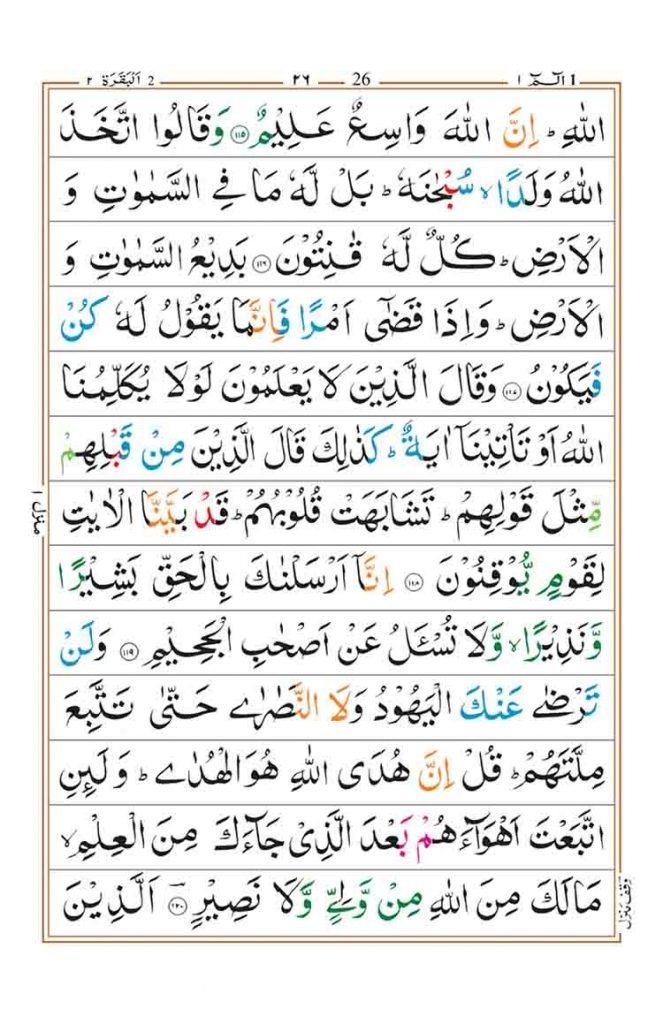 الٓمّٓ ١ 1 26 ٢٦ 2 اَلْبَقَرَة ٢
اللّٰهِ ؕ اِنَّ اللّٰهَ وَاسِعٌ عَلِيْمٌ ﴿۱۱۵﴾ وَقَالُوا اتَّخَذَ
اللّٰهُ وَلَدًا ۙ سُبْحٰنَهٗ ؕ بَلْ لَّهٗ مَا فِي السَّمٰوٰتِ وَ
الْاَرْضِ ؕ كُلٌّ لَّهٗ قٰنِتُوْنَ ﴿۱۱۶﴾ بَدِيْعُ السَّمٰوٰتِ وَ
الْاَرْضِ ؕ وَاِذَا قَضٰٓى اَمْرًا فَاِنَّمَا يَقُوْلُ لَهٗ كُنْ
فَيَكُوْنُ ﴿۱۱۷﴾ وَقَالَ الَّذِيْنَ لَا يَعْلَمُوْنَ لَوْلَا يُكَلِّمُنَا
اللّٰهُ اَوْ تَاْتِيْنَاۤ اٰيَةٌ ؕ كَذٰلِكَ قَالَ الَّذِيْنَ مِنْ قَبْلِهِمْ
مِّثْلَ قَوْلِهِمْ ؕ تَشَابَهَتْ قُلُوْبُهُمْ ؕ قَدْ بَيَّنَّا الْاٰيٰتِ
لِقَوْمٍ يُّوْقِنُوْنَ ﴿۱۱۸﴾ اِنَّاۤ اَرْسَلْنٰكَ بِالْحَقِّ بَشِيْرًا
وَّنَذِيْرًا ۙ وَّلَا تُسْـَٔلُ عَنْ اَصْحٰبِ الْجَحِيْمِ ﴿۱۱۹﴾ وَلَنْ
تَرْضٰى عَنْكَ الْيَهُوْدُ وَلَا النَّصٰرٰى حَتّٰى تَتَّبِعَ
مِلَّتَهُمْ ؕ قُلْ اِنَّ هُدَى اللّٰهِ هُوَ الْهُدٰى ؕ وَلَئِنِ
اتَّبَعْتَ اَهْوَآءَهُمْ بَعْدَ الَّذِيْ جَآءَكَ مِنَ الْعِلْمِ ۙ
مَا لَكَ مِنَ اللّٰهِ مِنْ وَّلِيٍّ وَّلَا نَصِيْرٍ ﴿۱۲۰﴾ اَلَّذِيْنَ
منزل ١
وقف منزل